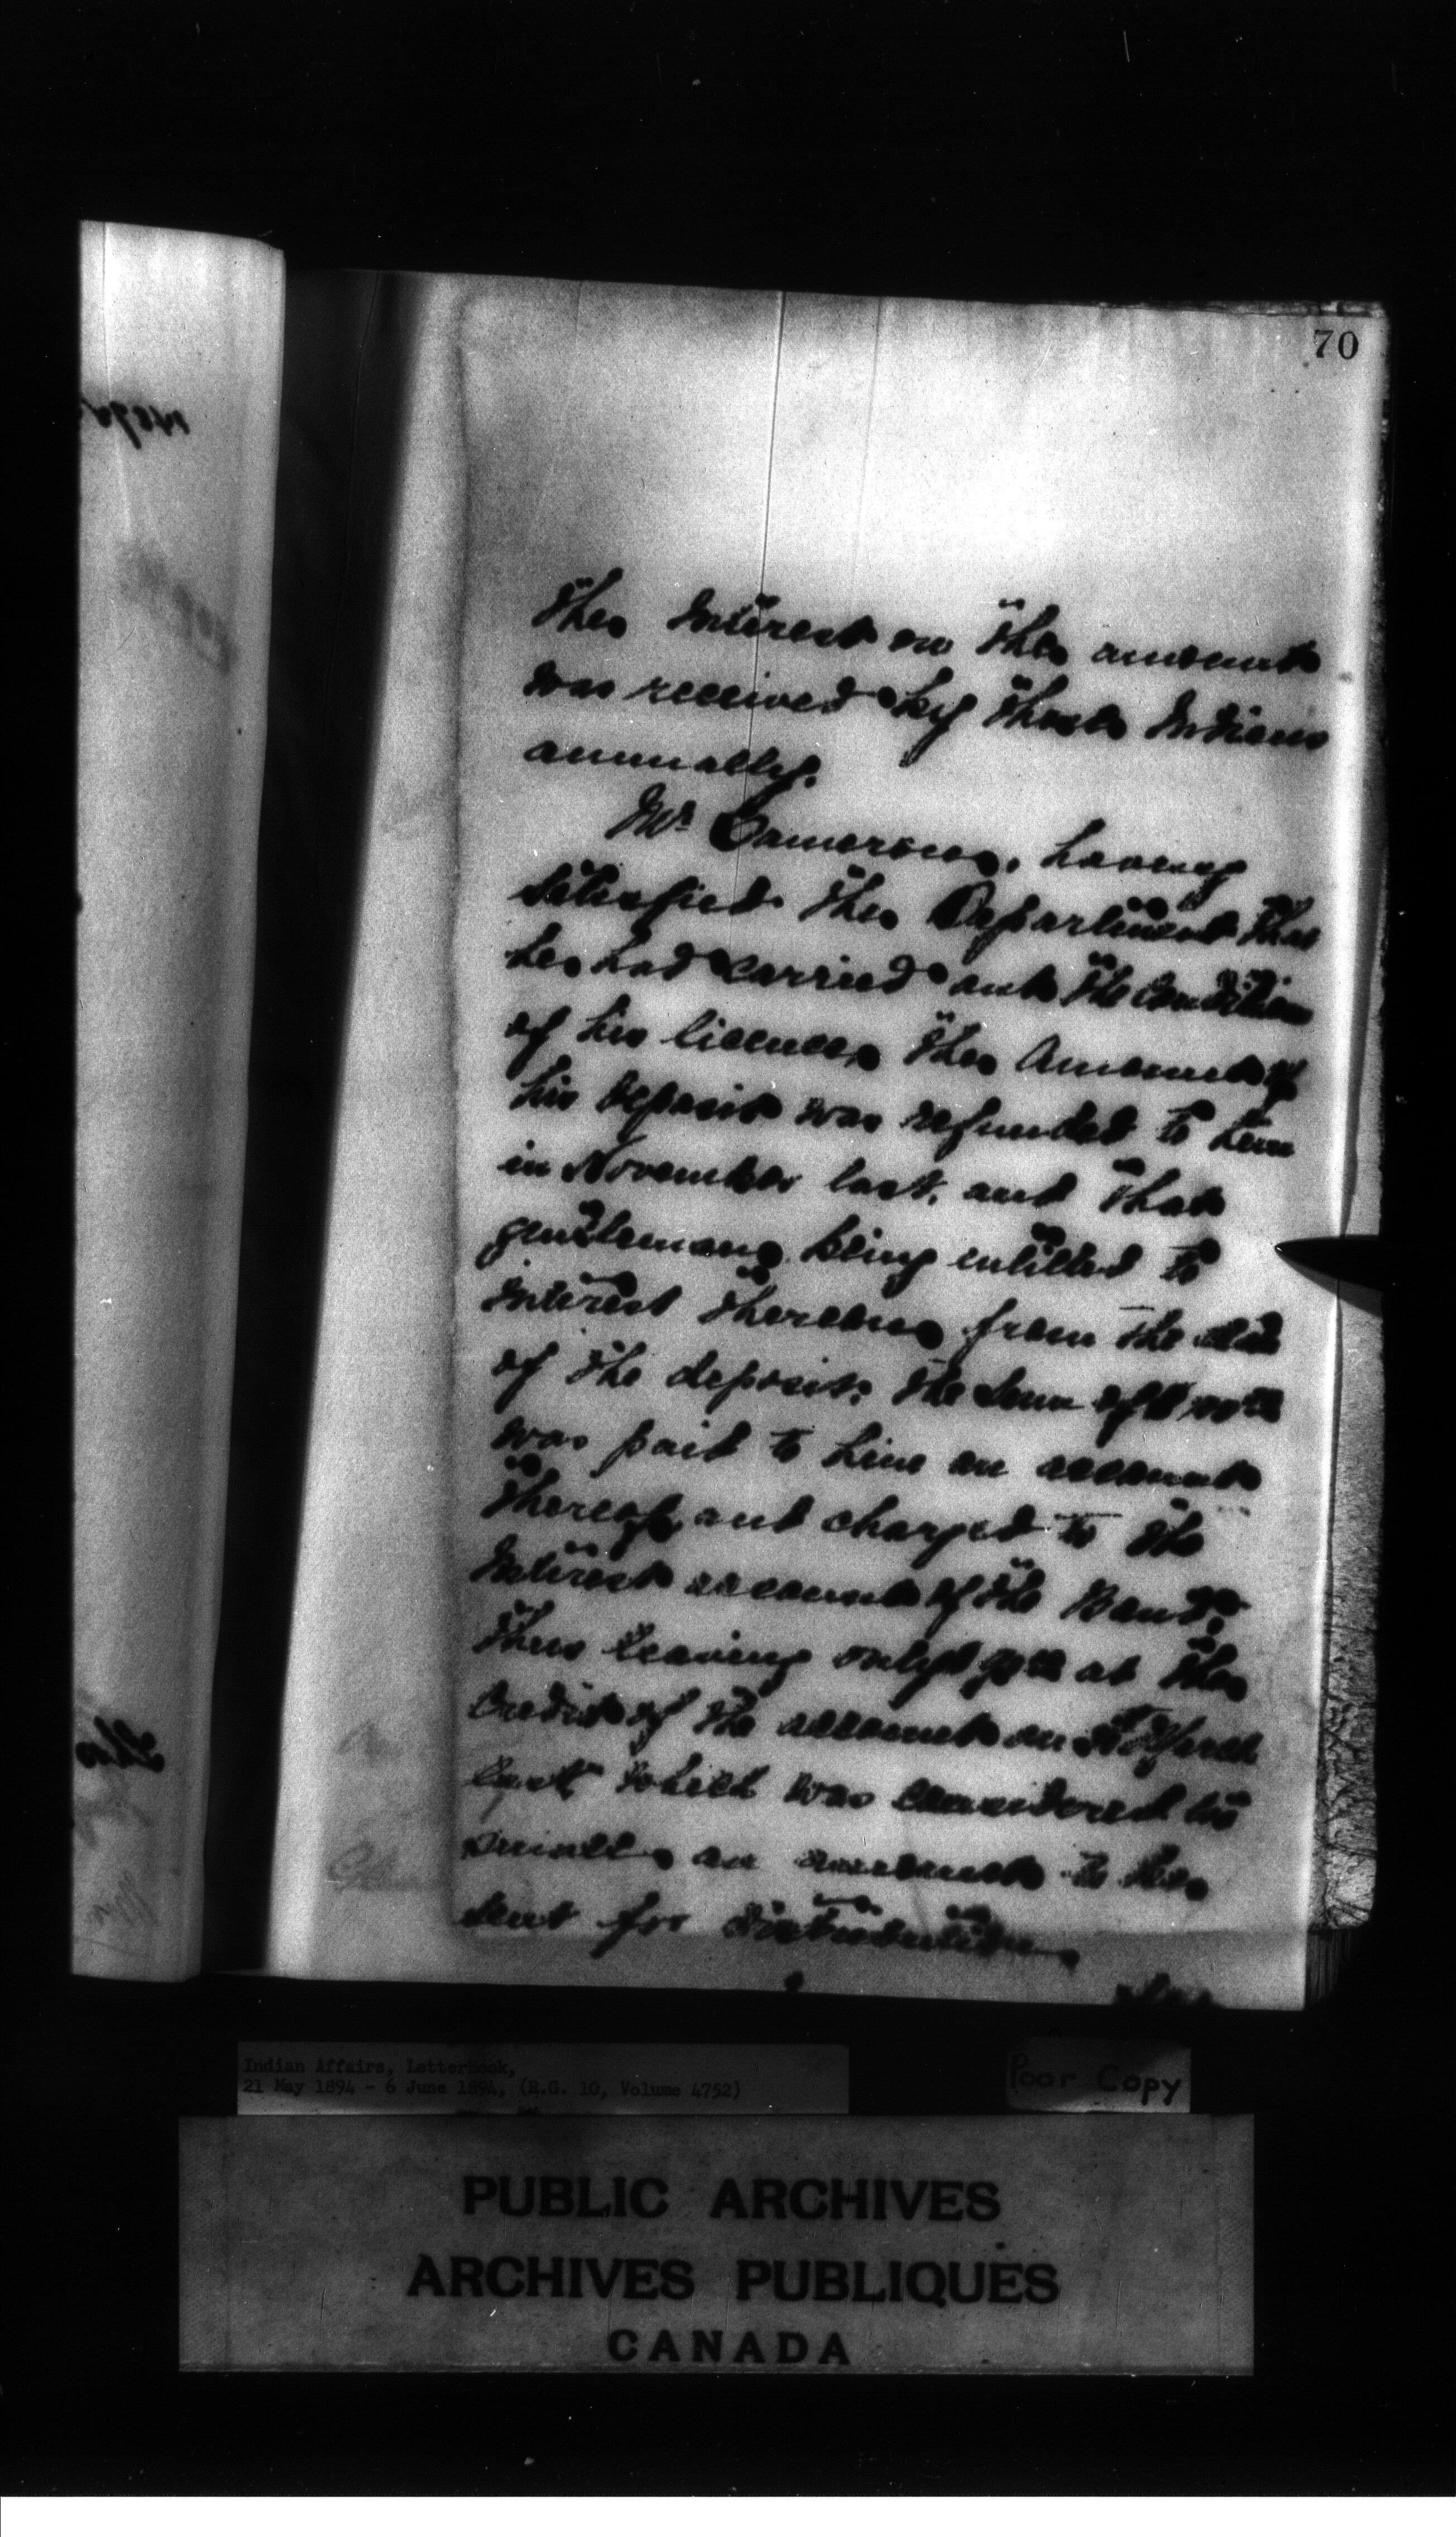 70
the interest on the amount
was received by these Indians
annually.
Mr. Cameron, having
satisfied the Department that
he had carried out the conditions
of his licence, the amount of
his deposit was refunded to him
in November last, and that
gentleman being entitled to
interest thereon from the date
of the deposit, the sum of
was paid to him on account
thereof, and charged to the
interest account of the Band,
thus leaving only at the
credit of the account on
last which was considered too
small an amount to be
sent for distribution.
Indian Affairs, Letterbook,
21 May 1894 - 6 June 1894, (R.G. 10, Volume 4752)
Poor Copy
PUBLIC ARCHIVES
ARCHIVES PUBLIQUES
CANADA